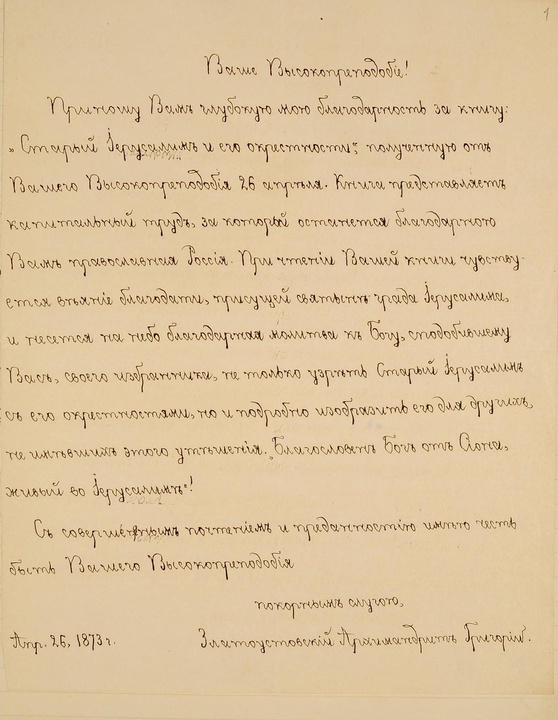 1
Ваше Высокопреподобіе!
Приношу Вамъ глубокую мою благодарность за книгу:
„Старый Іерусалимъ и его окрестности“, полученную отъ
Вашего Высокопреподобія 26 апрѣля. Книга представляетъ
капитальный трудъ, за который останется благодарною
Вамъ православная Россія. При чтеніи Вашей книги чувству-
ется вѣяніе благодати, присущей святынѣ града Іерусалима,
и несется на небо благодарная молитва къ Богу, сподобившему
Васъ, своего избранника, не только узрѣть Старый Іерусалимъ
съ его окрестностями, но и подробно изобразить его для другихъ,
не имѣвшихъ этого утѣшенія. „Благословенъ Богъ отъ Сіона,
живый во Іерусалимѣ“!
Съ совершеннымъ почтеніемъ и преданностію имѣю честь
быть Вашего Высокопреподобія
покорнымъ слугою,
Апр. 26, 1873 г. Златоустовскій Архимандритъ Григорій.